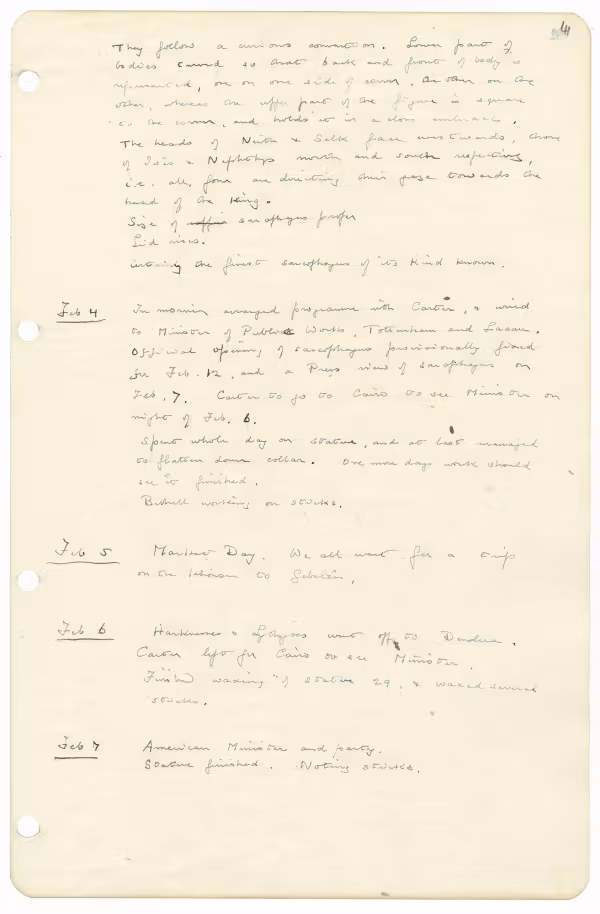 4
They follow a curious convention. Lower part of
bodies carved so that back and front of body is
represented, one on one side of corner, the other on the
other, whereas the upper part of the figure is square
to the corner, and holds it in a close embrace.
The heads of Neith & Selk face westwards, those
of Isis & Nephthys north and south respectively,
i.e. all four are directing their gaze towards the
head of the King.
Size of coffin sarcophagus proper
Lid rises.
certainly the finest sarcophagus of its kind known.
Feb 4 In morning arranged programme with Carter, & wired
to Minister of Public Works, Tottenham and Lacau.
Official opening of sarcophagus provisionally fixed
for Feb. 12, and a Press view of sarcophagus on
Feb. 7. Carter to go to Cairo to see Minister on
night of Feb. 6.
Spent whole day on statue, and at last managed
to flatten down collar. One more days work should
see it finished.
Bethell working on sticks.
Feb 5 Market Day. We all went for a trip
on the to Gebelên.
Feb 6 Harknesses & Lythgoes went off to Dendera.
Carter left for Cairo to see Minister.
Finished waxing of statue 29, & waxed several
sticks.
Feb 7 American Minister and party.
Statue finished. Noting sticks.